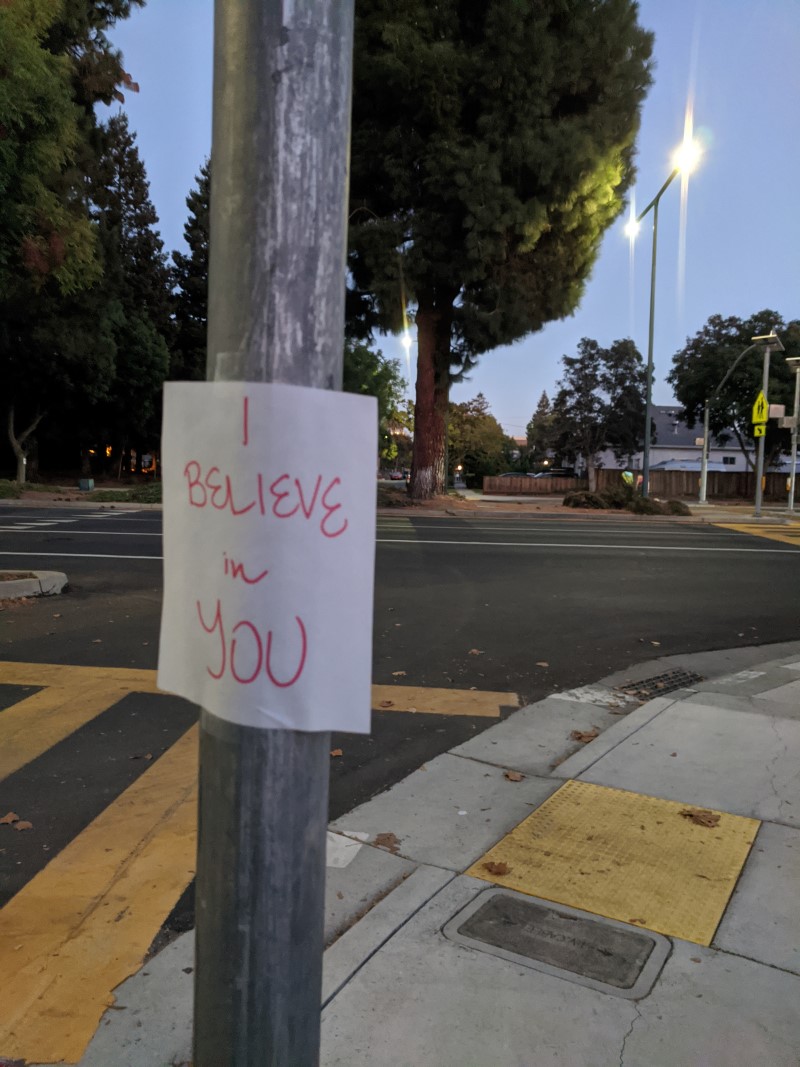 I
BELIEVE
in
YOU